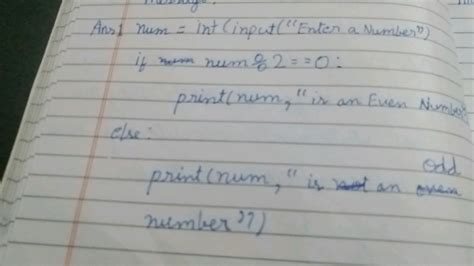 Ans1 num = int(input("Enter a Number")
if num % 2 == 0:
print(num, "is an Even Number
else:
print(num, "is an odd
number")